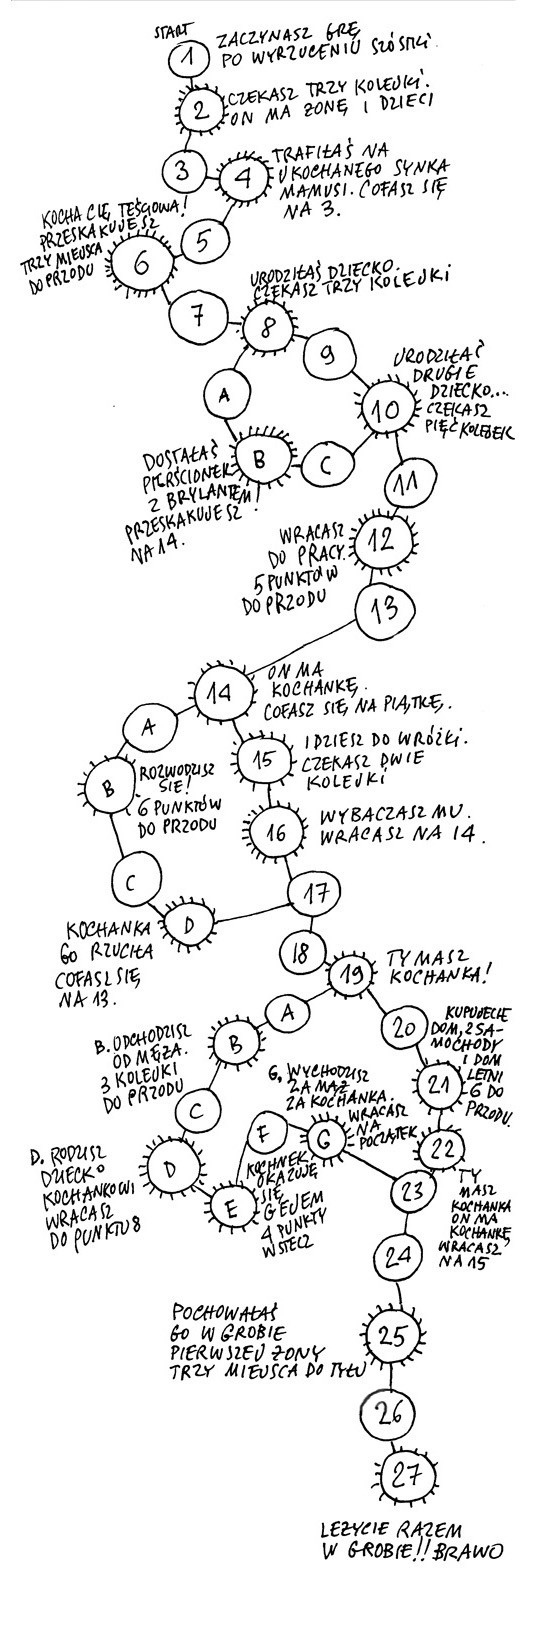 START
1
ZACZYNASZ GRĘ
PO WYRZUCENIU SZÓSTKI.
2
CZEKASZ TRZY KOLEJKI.
ON MA ŻONĘ I DZIECI
3
4
TRAFIŁAŚ NA
UKOCHANEGO SYNKA
MAMUSI. COFASZ SIĘ
NA 3.
5
KOCHA CIĘ TEŚCIOWA!
PRZESKAKUJESZ
TRZY MIEJSCA
DO PRZODU
6
7
URODZIŁAŚ DZIECKO.
CZEKASZ TRZY KOLEJKI
8
9
URODZIŁAŚ
DRUGIE
DZIECKO...
CZEKASZ
PIĘĆ KOLEJEK
10
A
B
C
DOSTAŁAŚ
PIERŚCIONEK
Z BRYLANTEM!
PRZESKAKUJESZ
NA 14.
11
WRACASZ
DO PRACY.
5 PUNKTÓW
DO PRZODU
12
13
14
ON MA
KOCHANKĘ.
COFASZ SIĘ NA PIĄTKĘ.
A
15
IDZIESZ DO WRÓŻKI.
CZEKASZ DWIE
KOLEJKI
B
ROZWODZISZ
SIĘ!
6 PUNKTÓW
DO PRZODU
16
WYBACZASZ MU.
WRACASZ NA 14.
C
17
D
KOCHANKA
GO RZUCIŁA
COFASZ SIĘ
NA 13.
18
19
TY MASZ
KOCHANKA!
A
20
KUPUJECIE
DOM, 2 SA-
MOCHODY
I DOM
LETNI
6 DO
PRZODU.
B
B. ODCHODZISZ
OD MĘŻA.
3 KOLEJKI
DO PRZODU
21
C
G. WYCHODZISZ
ZA MĄŻ
ZA KOCHANKA.
WRACASZ
NA
POCZĄTEK
F
G
22
TY
MASZ
KOCHANKA
ON MA
KOCHANKĘ,
WRACASZ
NA 15
D
D. RODZISZ
DZIECKO
KOCHANKOWI
WRACASZ
DO PUNKTU 8
E
KOCHNEK
OKAZUJE
SIĘ
GEJEM
4 PUNKTY
WSTECZ
23
24
POCHOWAŁAŚ
GO W GROBIE
PIERWSZEJ ŻONY
TRZY MIEJSCA DO TYŁU
25
26
27
LEŻYCIE RAZEM
W GROBIE!! BRAWO